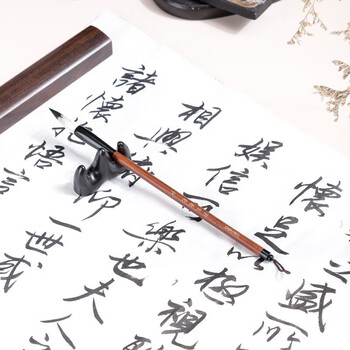 盛所
懷足極視
娛信可樂也夫人
相與仰一世或
諸懷悟言